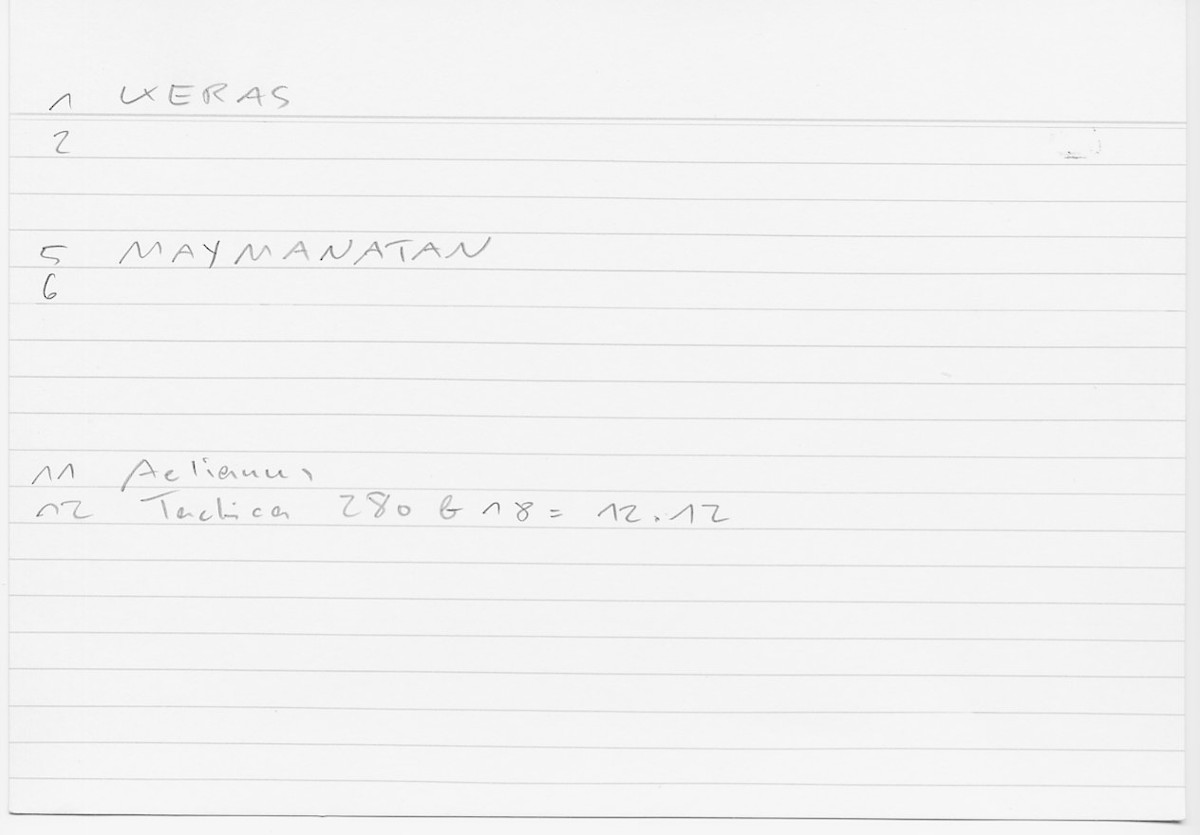 1 KERAS
2
5 MAYMANATAN
6
11 Aelianus
12 Tactica 280 18 = 12.12